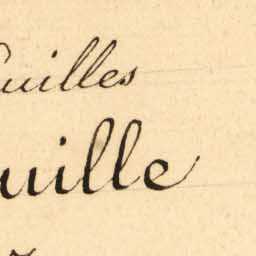 uilles
uille